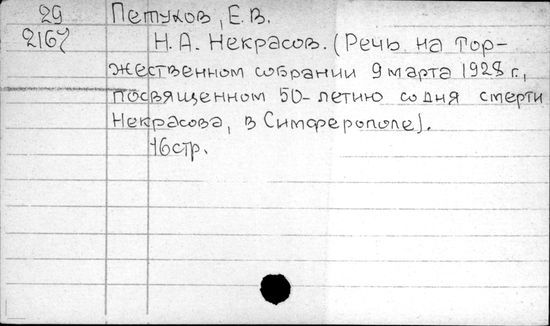 29
2167
Петухов, Е.В.
Н.А. Некрасов. (Речь на тор-
жественном собрании 9 марта 1928 г.,
посвященном 50-летию со дня смерти
Некрасова, в Симферополе).
16стр.